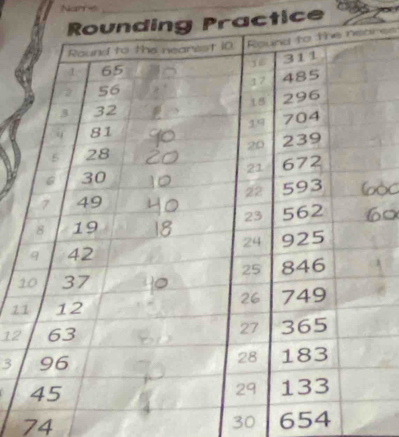 Name
Rounding Practice
Round to the nearest 10 Round to the nearest
1 65 16 311
2 56 17 485
3 32 18 296
4 81 90 19 704
5 28 20 20 239
6 30 10 21 672
7 49 40 22 593
8 19 18 23 562
9 42 24 925
10 37 40 25 846
11 12 26 749
12 63 27 365
3 96 28 183
45 29 133
74 30 654